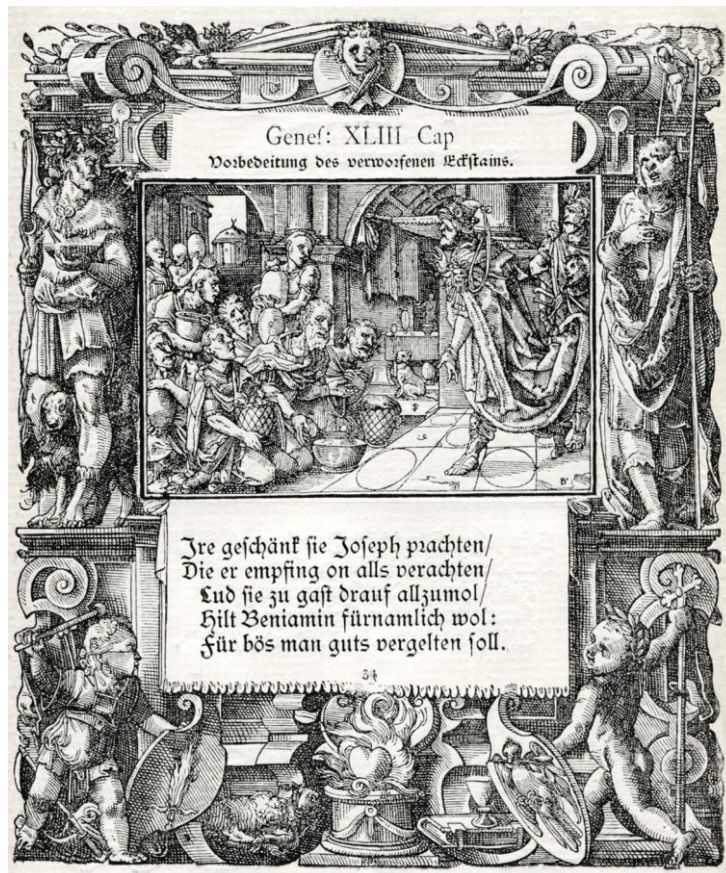 Geneſ: XLIII Cap
Vorbedeitung des verworfenen Eckſtains.
Jre geſchänk ſie Joſeph prachten/
Die er empfing on alls verachten/
Lud ſie zu gaſt drauf allzumol/
Hilt Beniamin fürnamlich wol:
Für bös man guts vergelten ſoll.